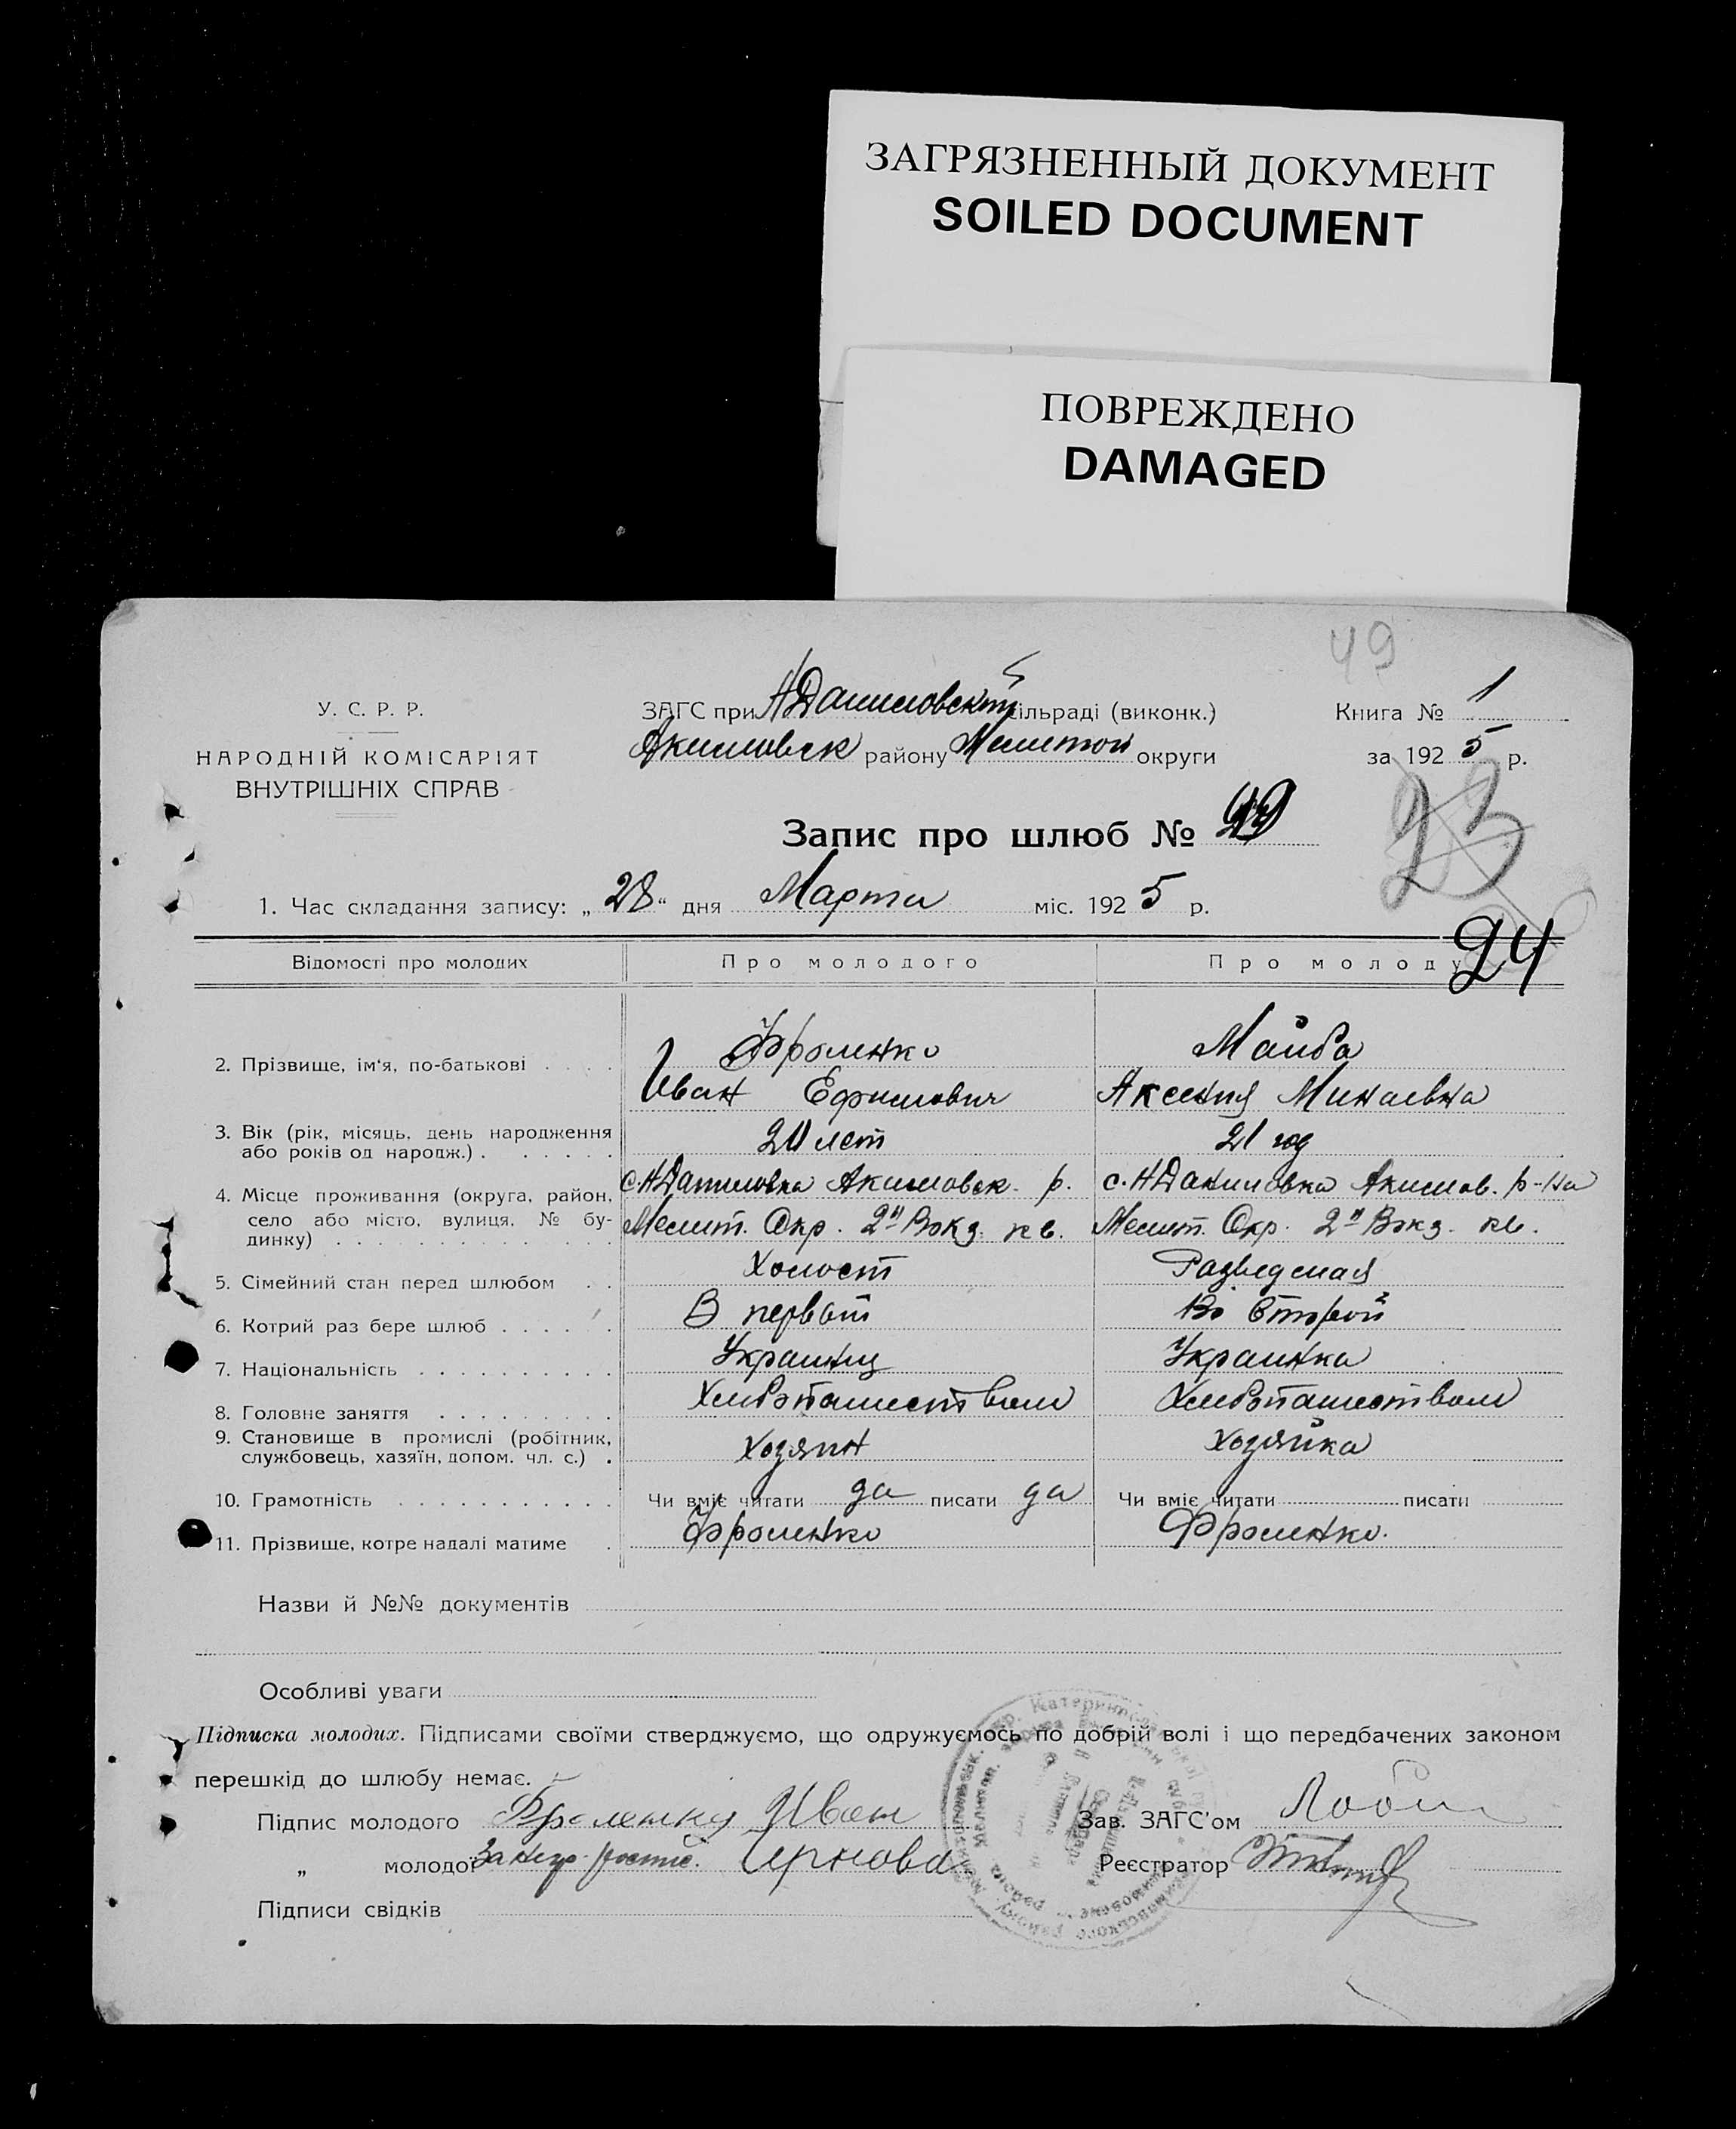 ЗАГРЯЗНЕННЫЙ ДОКУМЕНТ
SOILED DOCUMENT
ПОВРЕЖДЕНО
DAMAGED
49
У. С. Р. Р.
НАРОДНІЙ КОМІСАРІЯТ
ВНУТРІШНІХ СПРАВ
ЗАГС при НДаниловской сільраді (виконк.)
Акимовск району Мелитоп округи
Книга № 1
за 1925 р.
23
Запис про шлюб №
1. Час складання запису: „28“ дня Марта міс. 1925 р.
24
Відомості про молодих Про молодого Про молоду
2. Прізвище, ім‘я, по-батькові . . . . Фроленко Майба
Иван Ефимович Аксения Минаевна
3. Вік (рік, місяць, день народження 20 лет 21 год
або років од народж.) . . . . . .
4. Місце проживання (округа, район, с. НДаниловка Акимовск. р. с. НДаниловка Акимов. р-на
село або місто, вулиця, № бу- Мелит. Окр. 2й Вокз. кв. Мелит. Окр. 2й Вокз. кв.
динку) . . . . . . . . . . . .
5. Сімейний стан перед шлюбом . . Холост Разведеная
6. Котрий раз бере шлюб . . . . . . В первый Во второй
7. Національність . . . . . . . . . . Украинц Украинка
8. Головне заняття . . . . . . . . . Хлебопашеством Хлебопашеством
9. Становище в промислі (робітник, Хозяин Хозяйка
службовець, хазяїн, допом. чл. с.) .
10. Грамотність . . . . . . . . . . . Чи вміє читати да писати да Чи вміє читати писати
11. Прізвище, котре надалі матиме . Фроленко Фроленко.
Назви й №№ документів
Особливі уваги
Підписка молодих. Підписами своїми стверджуємо, що одружуємось по добрій волі і що передбачених законом
перешкід до шлюбу немає.
Підпис молодого Фроленко Иван Зав. ЗАГС’ом
„ молодої За негр. роспис. Чернова Реєстратор
Підписи свідків